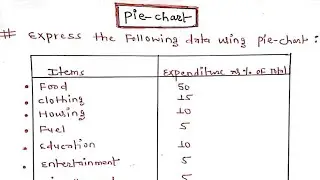 Pie-chart
# Express the following data using pie-chart :
Items Expenditure as % of total
• Food 50
• clothing 15
• Housing 10
• Fuel 5
• Education 10
• Entertainment 5